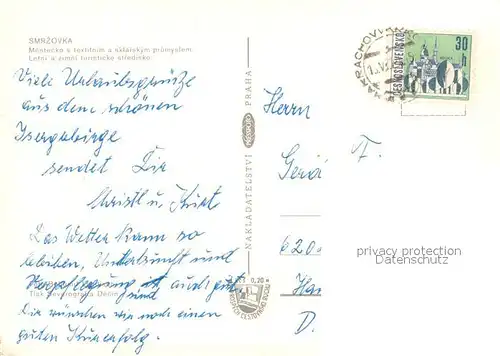 SMRŽOVKA
Městečko s textilním a sklářským průmyslem
Letní a zimní turistické středisko
Viele Urlaubsgrüße
aus dem schönen
Isergebirge
sendet Dir
Christl u. Kurt
Das Wetter kann so
bleiben, Unterkunft und
Verpflegung ist auch gut, und
Dir wünschen wir noch einen
guten Kurerfolg.
Tisk Severografia Děčín
NAKLADATELSTVÍ PRESSFOTO PRAHA
0,20
HARRACHOV V KRK
ČESKOSLOVENSKO
30 h
Herrn
F.
620
D.
privacy protection
www.oldthing.com